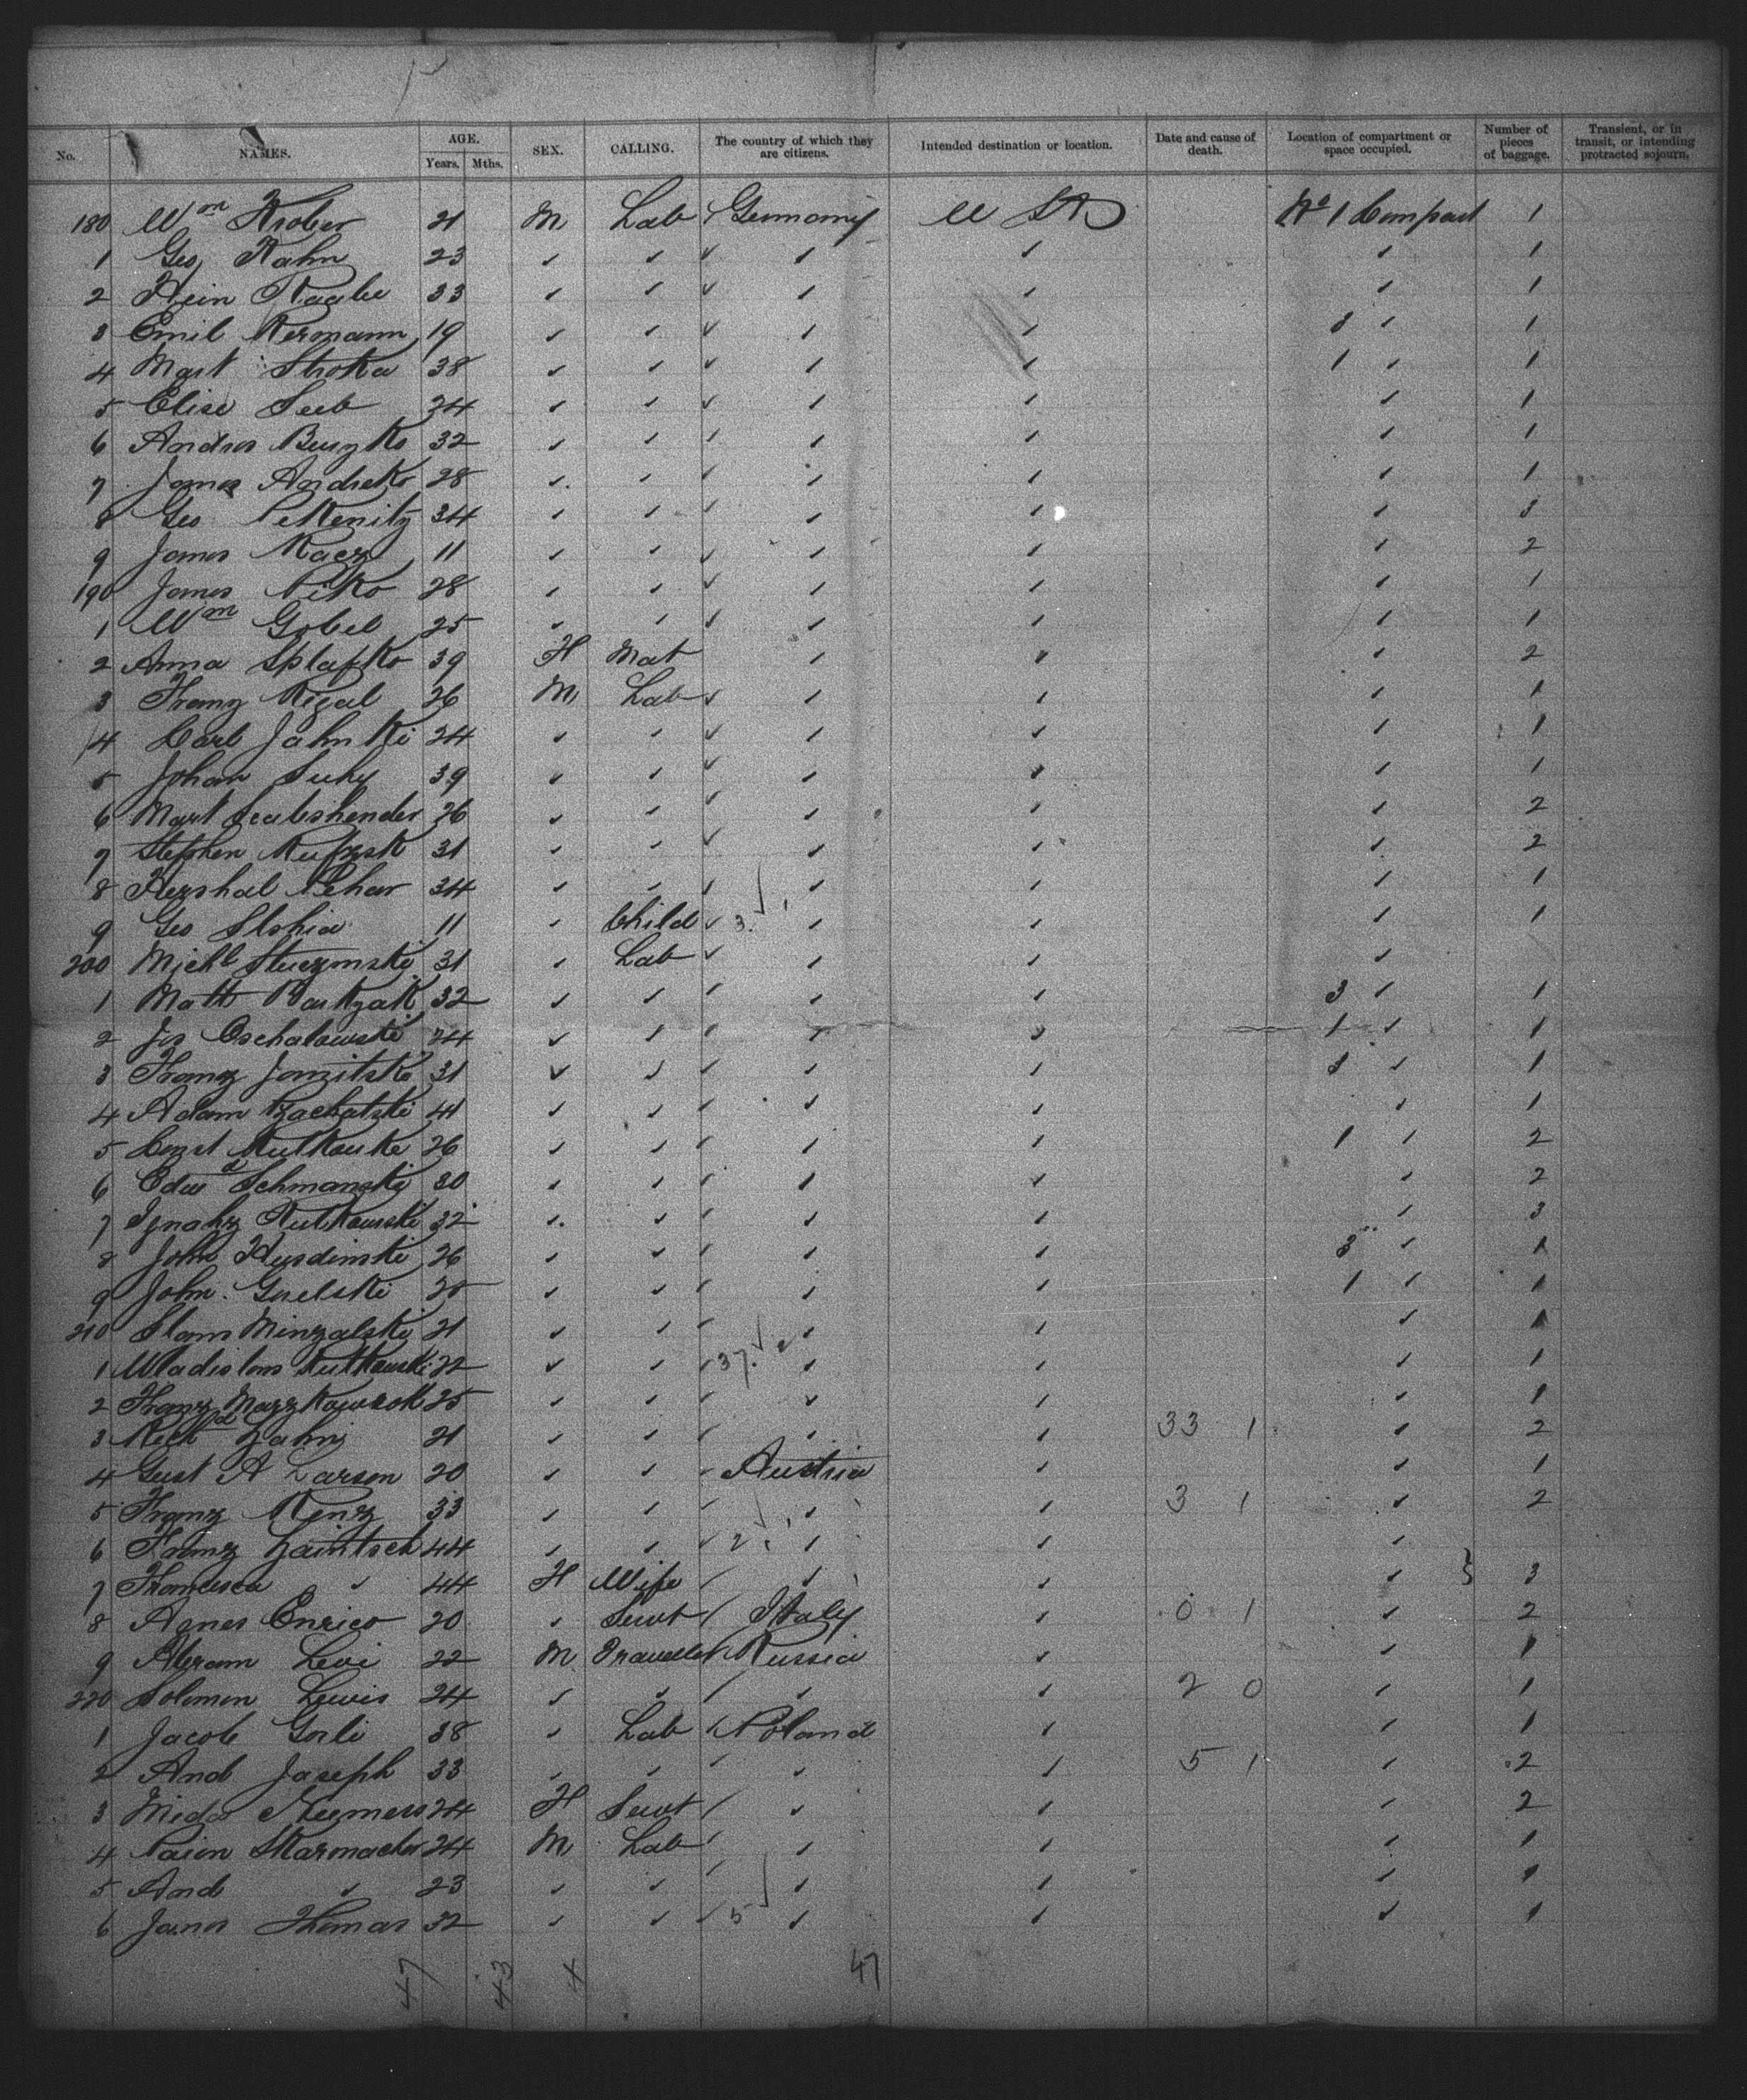 No. NAMES. AGE. Years. Mths. SEX. CALLING. The country of which they are citizens. Intended destination or location. Date and cause of death. Location of compartment or space occupied. Number of pieces of baggage. Transient, or in transit, or intending protracted sojourn.
180 Wm Krober 21 M Lab Germany U S A No 1 Compart 1
1 Geo Kahn 23 1
2 Hein Raabe 33 1
3 Emil Hermann 19 3 1
4 Mart Stroka 38 1 1
5 Elise Seeb 24 1
6 Andras 32 1
7 James Andrcko 28 1
8 Geo 34 3
9 James Kacz 11 2
190 James Piko 28 1
1 Wm Gobel 25 1
2 Anna 39 F Mat 2
3 Franz Rigal 26 M Lab 1
4 Carl Jahnki 24 1
5 Johan Suhy 39 1
6 Mart 26 2
7 Stephen 31 2
8 Hershal 34 1
9 Geo 11 Child 3 1
200 Michl 31 Lab
1 Matt 32 3 1
2 Jos Oschalowski 24 1 1
3 Franz 31 3 1
4 Adam 41 1
5 Const 26 1 2
6 Edwd Schmanski 30 2
7 Ignahz Rutkowski 32 3
8 John Hurdinski 26 3 1
9 John 20 1 1
210 Minzalski 21 1
1 Rutkowski 22 37 1
2 Franz 25 1
3 Zahn 21 33 1 2
4 Gust A Larson 20 Austria 1
5 Franz Renz 33 3 1 2
6 Franz 44 2
7 44 F Wife 3
8 Agnes Enrico 20 Servt Italy 0 1 2
9 Abram Levi 22 M Traveller Russia 1
220 Solomon Lewis 24 2 0 1
1 Jacob Gorli 38 Lab Poland 1
2 And Joseph 33 5 1 2
3 24 F Servt 2
4 24 M Lab 1
5 And 23 1
6 Janos Thomas 32 5 1
47 43 4 47